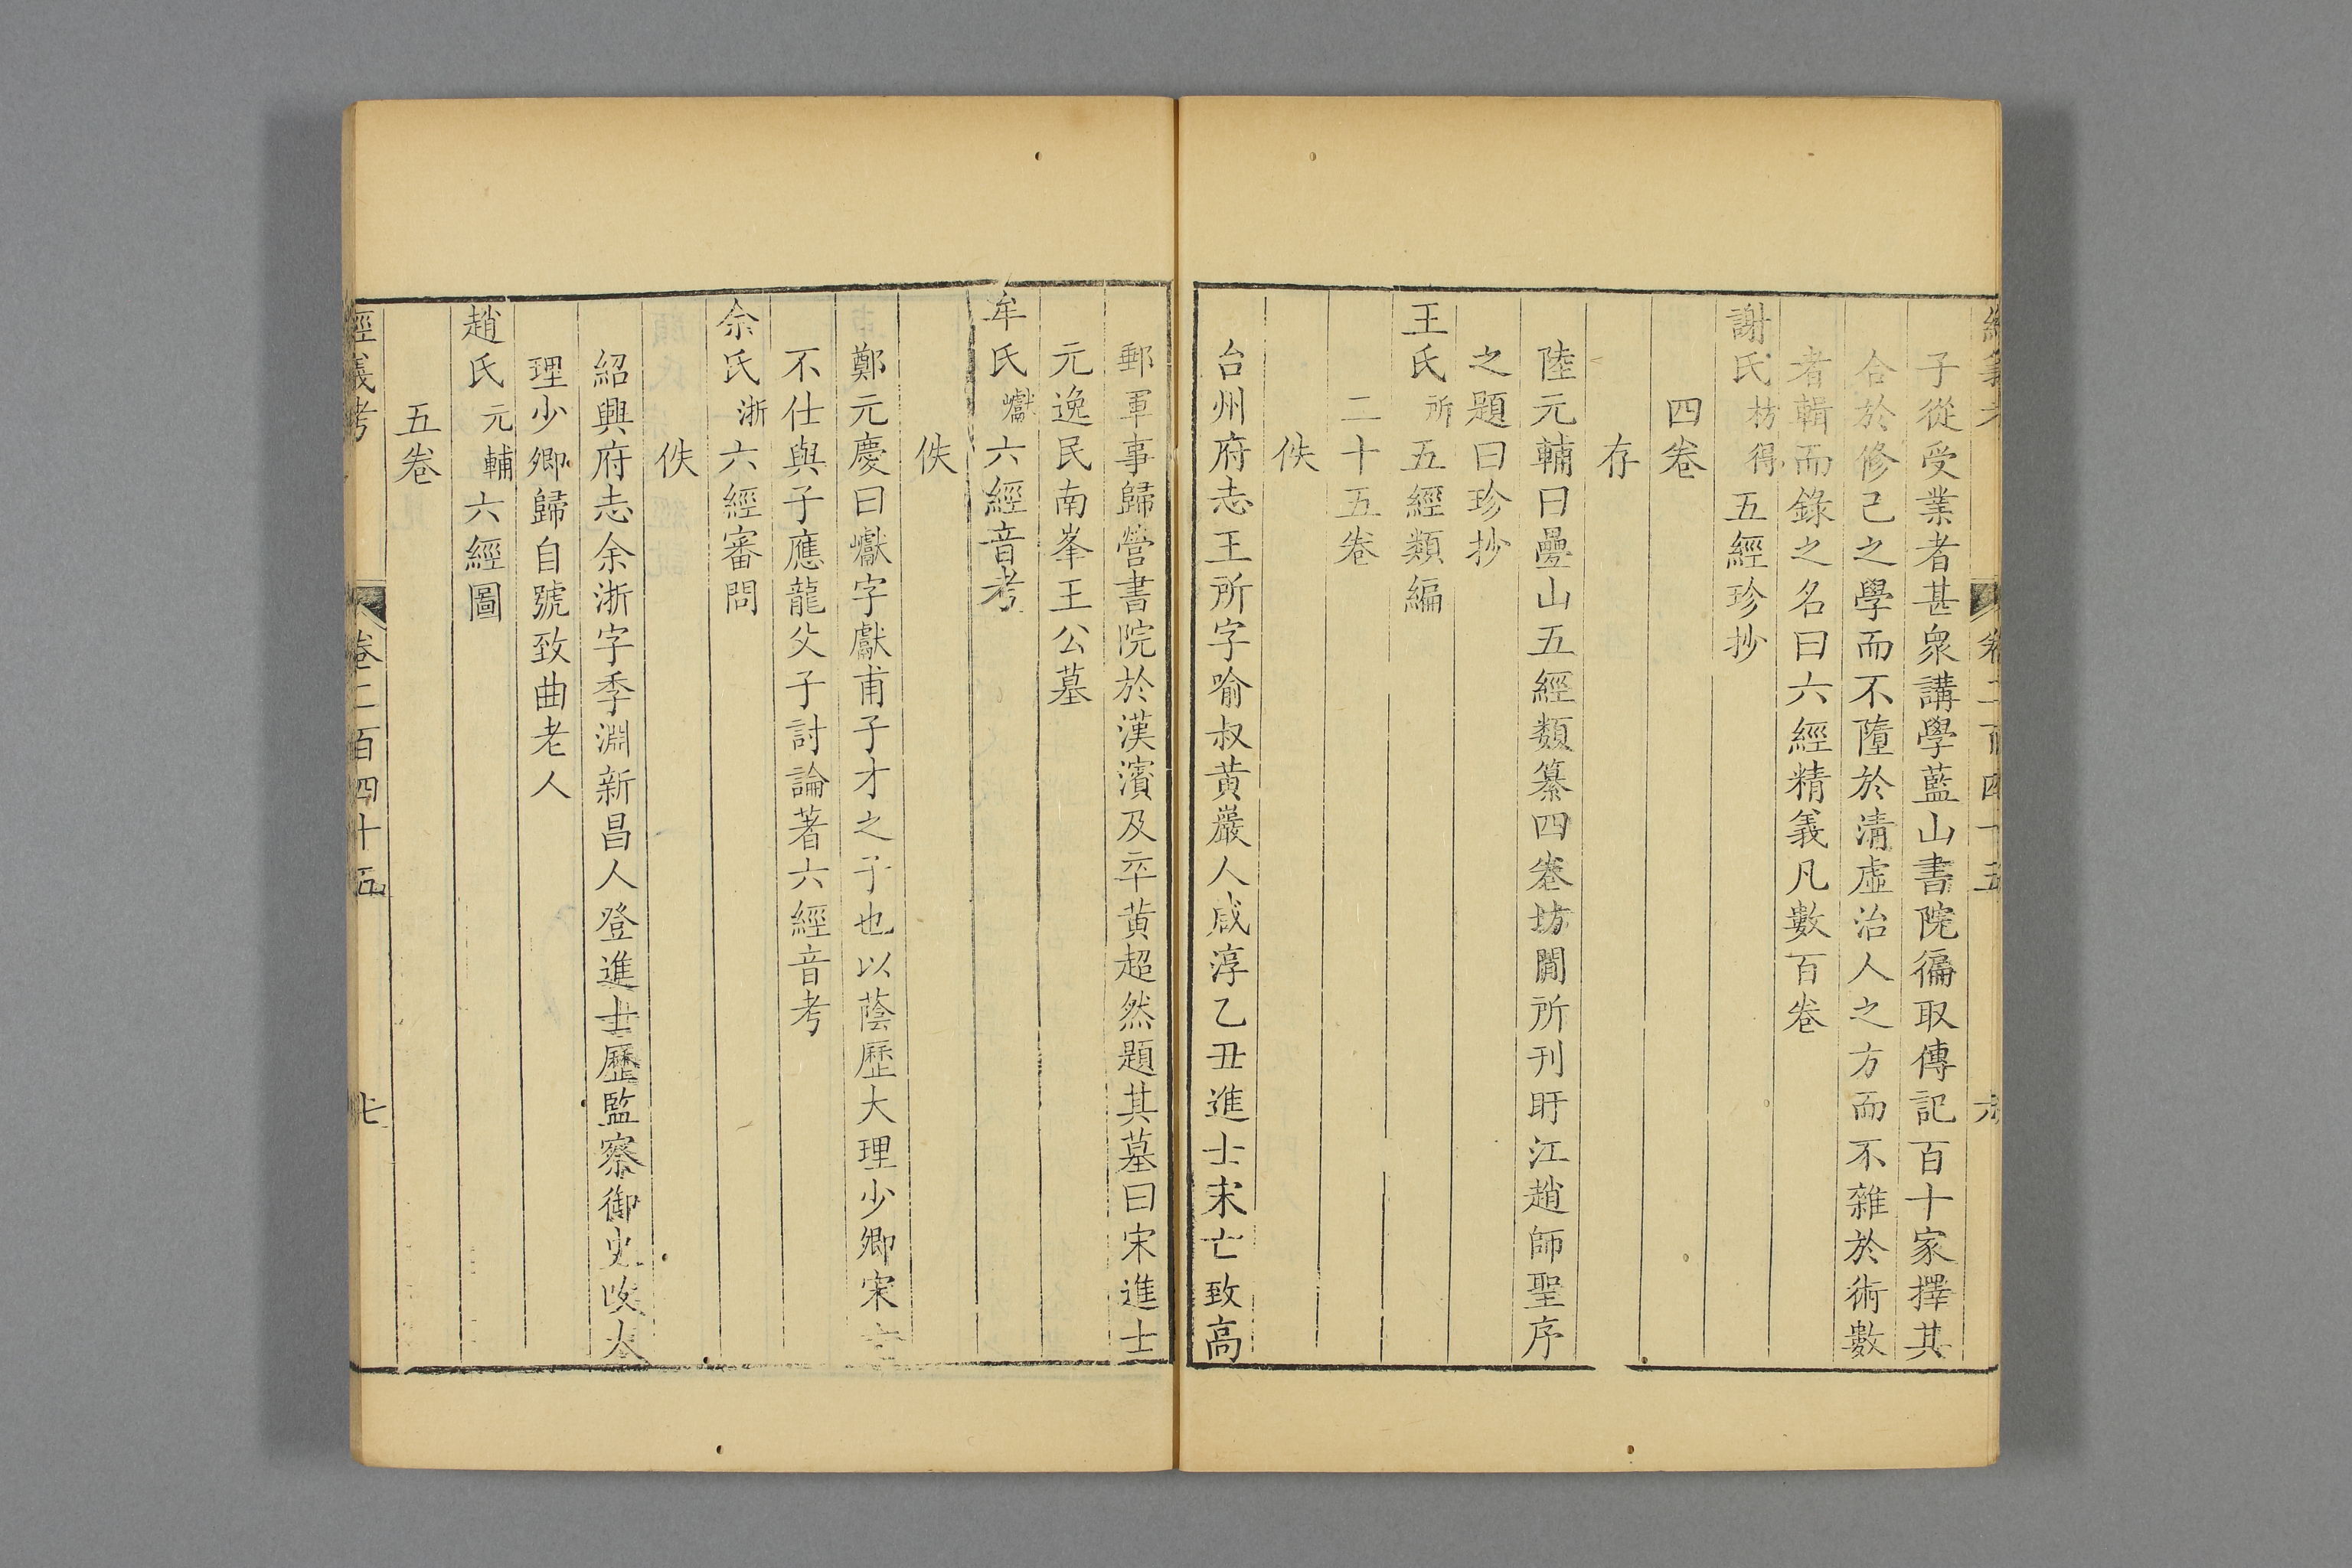 經義考 卷二百四十五 六
子從受業者甚衆講學藍山書院徧取傳記百十家擇其
合於修己之學而不墮於清虛治人之方而不雜於術數
者輯而錄之名曰六經精義凡數百卷
謝氏枋得五經珍抄
四卷
存
陸元輔曰曡山五經類纂四卷坊間所刊盱江趙師聖序
之題曰珍抄
王氏所五經類編
二十五卷
佚
台州府志王所字喻叔黄巖人咸淳乙丑進士宋亡致高
郵軍事歸營書院於漢濱及卒黄超然題其墓曰宋進士
元逸民南峯王公墓
牟氏巘六經音考
佚
鄭元慶曰巘字獻甫子才之子也以蔭歷大理少卿宋亡
不仕與子應龍父子討論著六經音考
余氏浙六經審問
佚
紹興府志余浙字季淵新昌人登進士歷監察御史改大
理少卿歸自號致曲老人
趙氏元輔六經圖
五卷
經義考 卷二百四十五 七